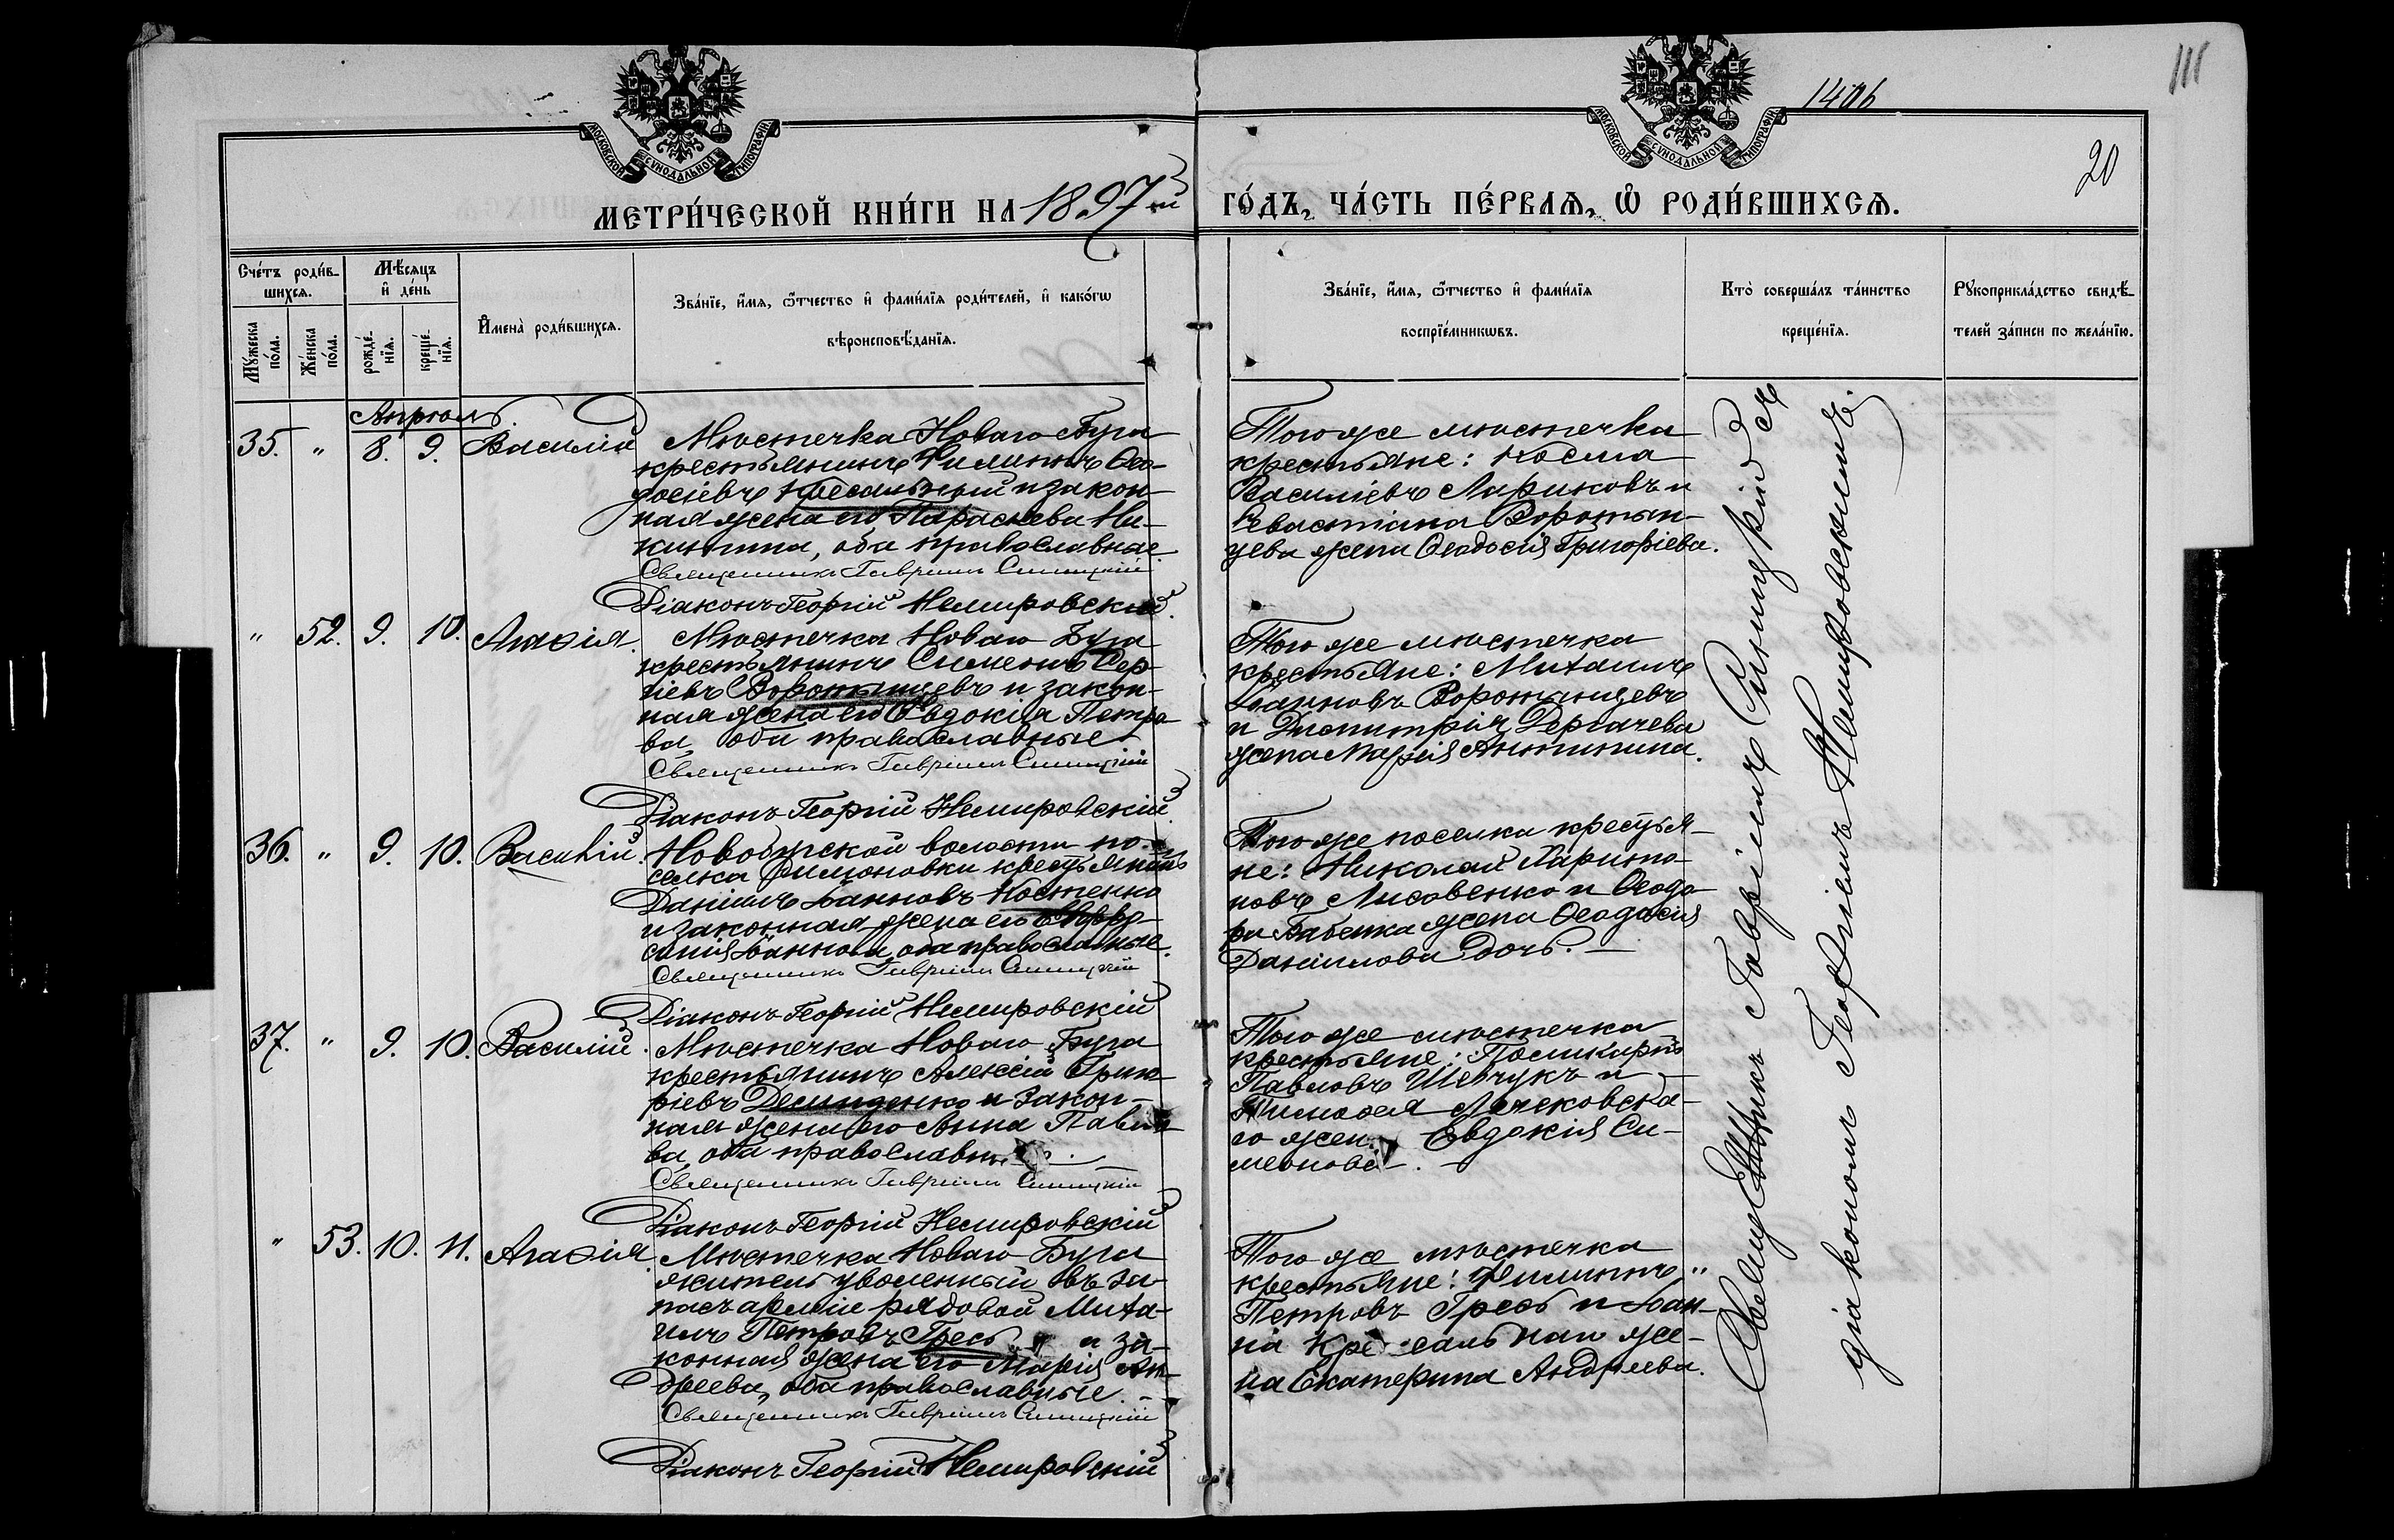 1406
111
20
МОСКОВСКОЙ СѴНОДАЛЬНОЙ ТИПОГРАФІИ
МОСКОВСКОЙ СѴНОДАЛЬНОЙ ТИПОГРАФІИ
МЕТРИ́ЧЕСКОЙ КНИ́ГИ НА 1897й ГО́ДЪ, ЧА́СТЬ ПЕ́РВАѦ, Ѡ҆ РОДИ́ВШИХСѦ.
Сче́тъ роди́в-
шихсѧ.
Мꙋ́жеска по́ла.
Же́нска по́ла.
Мѣ́сѧцъ
и҆ де́нь
рожде́-
нїѧ.
креще́-
нїѧ.
И҆мена̀ роди́вшихсѧ.
Зва́нїе, и҆́мѧ, ѻ҆́тчество и҆ фами́лїѧ роди́телей, и҆ како́гѡ
вѣроисповѣ́данїѧ.
Зва́нїе, и҆́мѧ, ѻ҆́тчество и҆ фами́лїѧ
воспрїе́мникѡвъ.
Кто̀ соверша́лъ та́инство
креще́нїѧ.
Рꙋкоприкла́дство свидѣ́-
телей за́писи по жела́нїю.
Апрѣль.
35. " 8. 9. Василій
Мѣстечка Новаго Буга
крестьянинъ Филиппъ Ѳео-
досіевъ Кресальный и закон-
ная жена его Параскева Ни-
китина, оба православные
Священникъ Гавріилъ Синицкій
Діаконъ Георгій Немировскій.
Того же мѣстечка
крестьяне: Косма
Василіевъ Лариковъ и
Севастіана Воротын-
цева жена Ѳеодосія Григоріева.
" 52. 9. 10. Агафія.
Мѣстечка Новаго Буга
крестьянинъ Симеонъ Сер-
гіевъ Воротынцевъ и закон-
ная жена его Евдокія Петро-
ва, оба православные
Священникъ Гавріилъ Синицкій
Діаконъ Георгій Немировскій.
Того же мѣстечка
крестьяне: Михаилъ
Іоанновъ Воротынцевъ
и Димитрія Дергачева
жена Марія Антипина.
36. " 9. 10. Василій.
Новобугской волости по-
селка Симоновки крестьянинъ
Даніилъ Іоанновъ Костенко
и законная жена его Евфро-
синія Іоаннова, оба православные.
Священникъ Гавріилъ Синицкій
Діаконъ Георгій Немировскій
Того же поселка крестья-
не: Николай Харито-
новъ Лисовенко и Ѳеодо-
ра Бабенка жена Ѳеодосія
Даніилова дочь. —
37. " 9. 10. Василій.
Мѣстечка Новаго Буга
крестьянинъ Алексій Григо-
ріевъ Демиденко и закон-
ная жена его Анна Павло-
ва, оба православные. —
Священникъ Гавріилъ Синицкій
Діаконъ Георгій Немировскій
Того же мѣстечка
крестьяне: Поликарпъ
Павловъ Шевчукъ и —
Тимофея
го жена Евдокія Си-
меонова. —
" 53. 10. 11. Агафія.
Мѣстечка Новаго Буга
житель уволенный въ за-
пасъ арміи рядовой Миха-
илъ Петровъ Гресь и за-
конная жена его Марія Ан-
дреева, оба православные. —
Священникъ Гавріилъ Синицкій
Діаконъ Георгій Немировскій
Того же мѣстечка
крестьяне: Филиппъ "
Петровъ Гресь и Іоан-
на Кресальнаго же-
на Екатерина Андреева.
Священникъ Гавріилъ Синицкій съ
діакономъ Георгіемъ Немировскимъ.